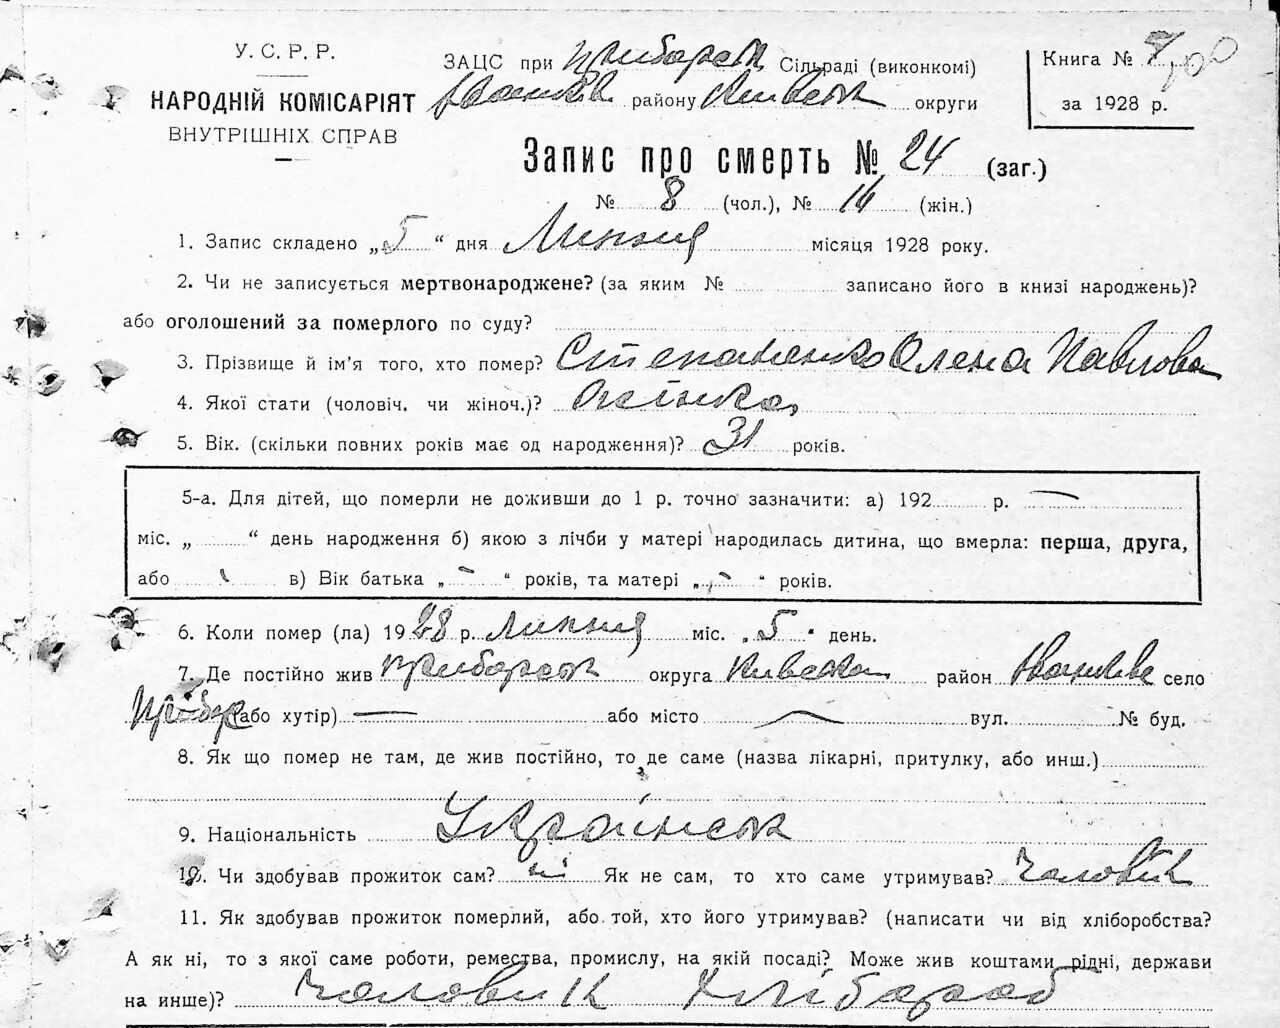 У. С. Р. Р.
НАРОДНІЙ КОМІСАРІЯТ
ВНУТРІШНІХ СПРАВ
ЗАЦС при Прибарськ Сільраді (виконкомі)
Іванків району Київськ округи
Книга №
за 1928 р.
Запис про смерть № 24 (заг.)
№ 8 (чол.), № 16 (жін.)
1. Запис складено „5“ дня Липня місяця 1928 року.
2. Чи не записується мертвонароджене? (за яким № записано його в книзі народжень)?
або оголошений за померлого по суду?
3. Прізвище й ім'я того, хто помер? Степаненко Олена Павлова
4. Якої стати (чоловіч. чи жіноч.)? жінка
5. Вік. (скільки повних років має од народження)? 31 років.
5-а. Для дітей, що померли не доживши до 1 р. точно зазначити: а) 192 р. —
міс. „ “ день народження б) якою з лічби у матері народилась дитина, що вмерла: перша, друга,
або в) Вік батька „ – “ років, та матері „ – “ років.
6. Коли помер (ла) 1928 р. Липня міс. „5“ день.
7. Де постійно жив Прибарськ округа Київська район Іванків село
(або хутір) — або місто — вул. № буд.
8. Як що помер не там, де жив постійно, то де саме (назва лікарні, притулку, або инш.)
9. Національність Українськ
10. Чи здобував прожиток сам? ні Як не сам, то хто саме утримував? Чаловік
11. Як здобував прожиток померлий, або той, хто його утримував? (написати чи від хліборобства?
А як ні, то з якої саме роботи, ремества, промислу, на якій посаді? Може жив коштами рідні, держави
на инше)? Чаловик Хлібароб